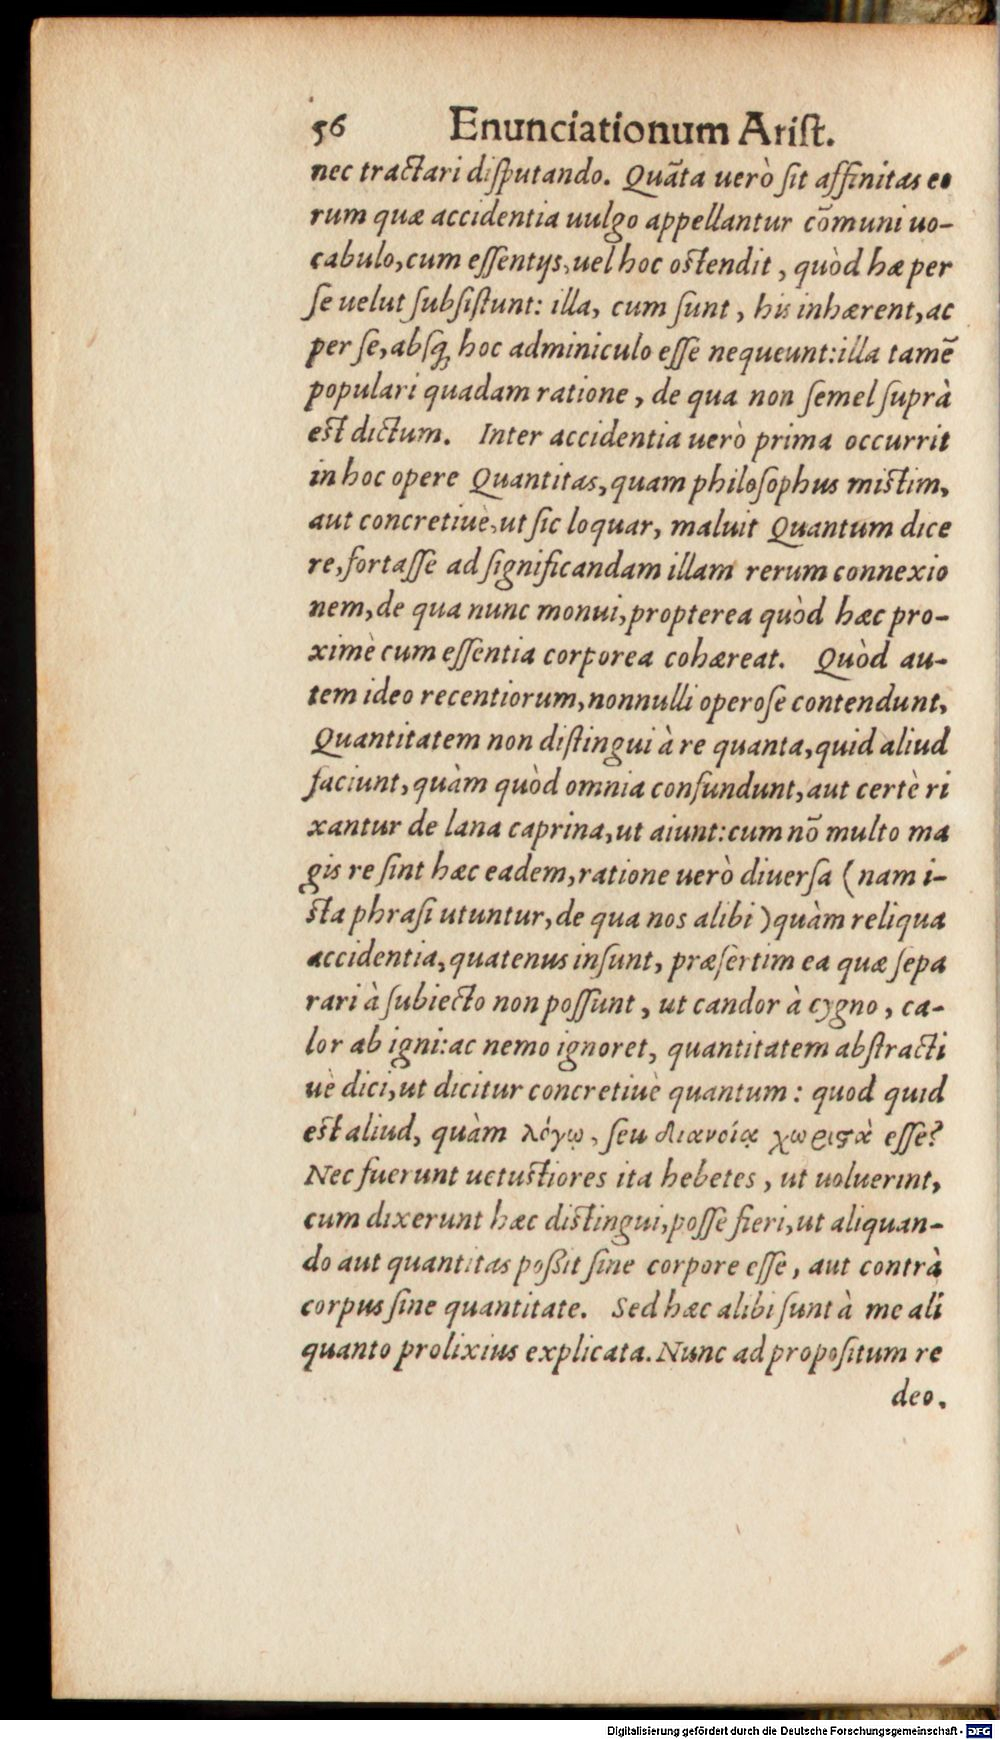 56 Enunciationum Arist.
nec tractari disputando. Quāta uerò sit affinitas eo
rum quæ accidentia uulgo appellantur cōmuni uo-
cabulo, cum essentijs, uel hoc ostendit, quòd hæ per
se uelut subsistunt: illa, cum sunt, his inhærent, ac
per se, absq; hoc adminiculo esse nequeunt: illa tamē
populari quadam ratione, de qua non semel suprà
est dictum. Inter accidentia uerò prima occurrit
in hoc opere Quantitas, quam philosophus mistim,
aut concretiuè, ut sic loquar, maluit Quantum dice
re, fortasse ad significandam illam rerum connexio
nem, de qua nunc monui, propterea quòd hæc pro-
ximè cum essentia corporea cohæreat. Quòd au-
tem ideo recentiorum, nonnulli operose contendunt,
Quantitatem non distingui à re quanta, quid aliud
faciunt, quàm quòd omnia confundunt, aut certè ri
xantur de lana caprina, ut aiunt: cum nō multo ma
gis re sint hæc eadem, ratione uerò diuersa (nam i-
sta phrasi utuntur, de qua nos alibi) quàm reliqua
accidentia, quatenus insunt, præsertim ea quæ sepa
rari à subiecto non possunt, ut candor à cygno, ca-
lor ab igni: ac nemo ignoret, quantitatem abstracti
uè dici, ut dicitur concretiuè quantum: quod quid
est aliud, quàm λόγῳ, seu διανοίᾳ χωριϛὰ esse?
Nec fuerunt uetustiores ita hebetes, ut uoluerint,
cum dixerunt hæc distingui, posse fieri, ut aliquan-
do aut quantitas poßit sine corpore esse, aut contrà
corpus sine quantitate. Sed hæc alibi sunt à me ali
quanto prolixius explicata. Nunc ad propositum re
deo.
Digitalisierung gefördert durch die Deutsche Forschungsgemeinschaft - DFG